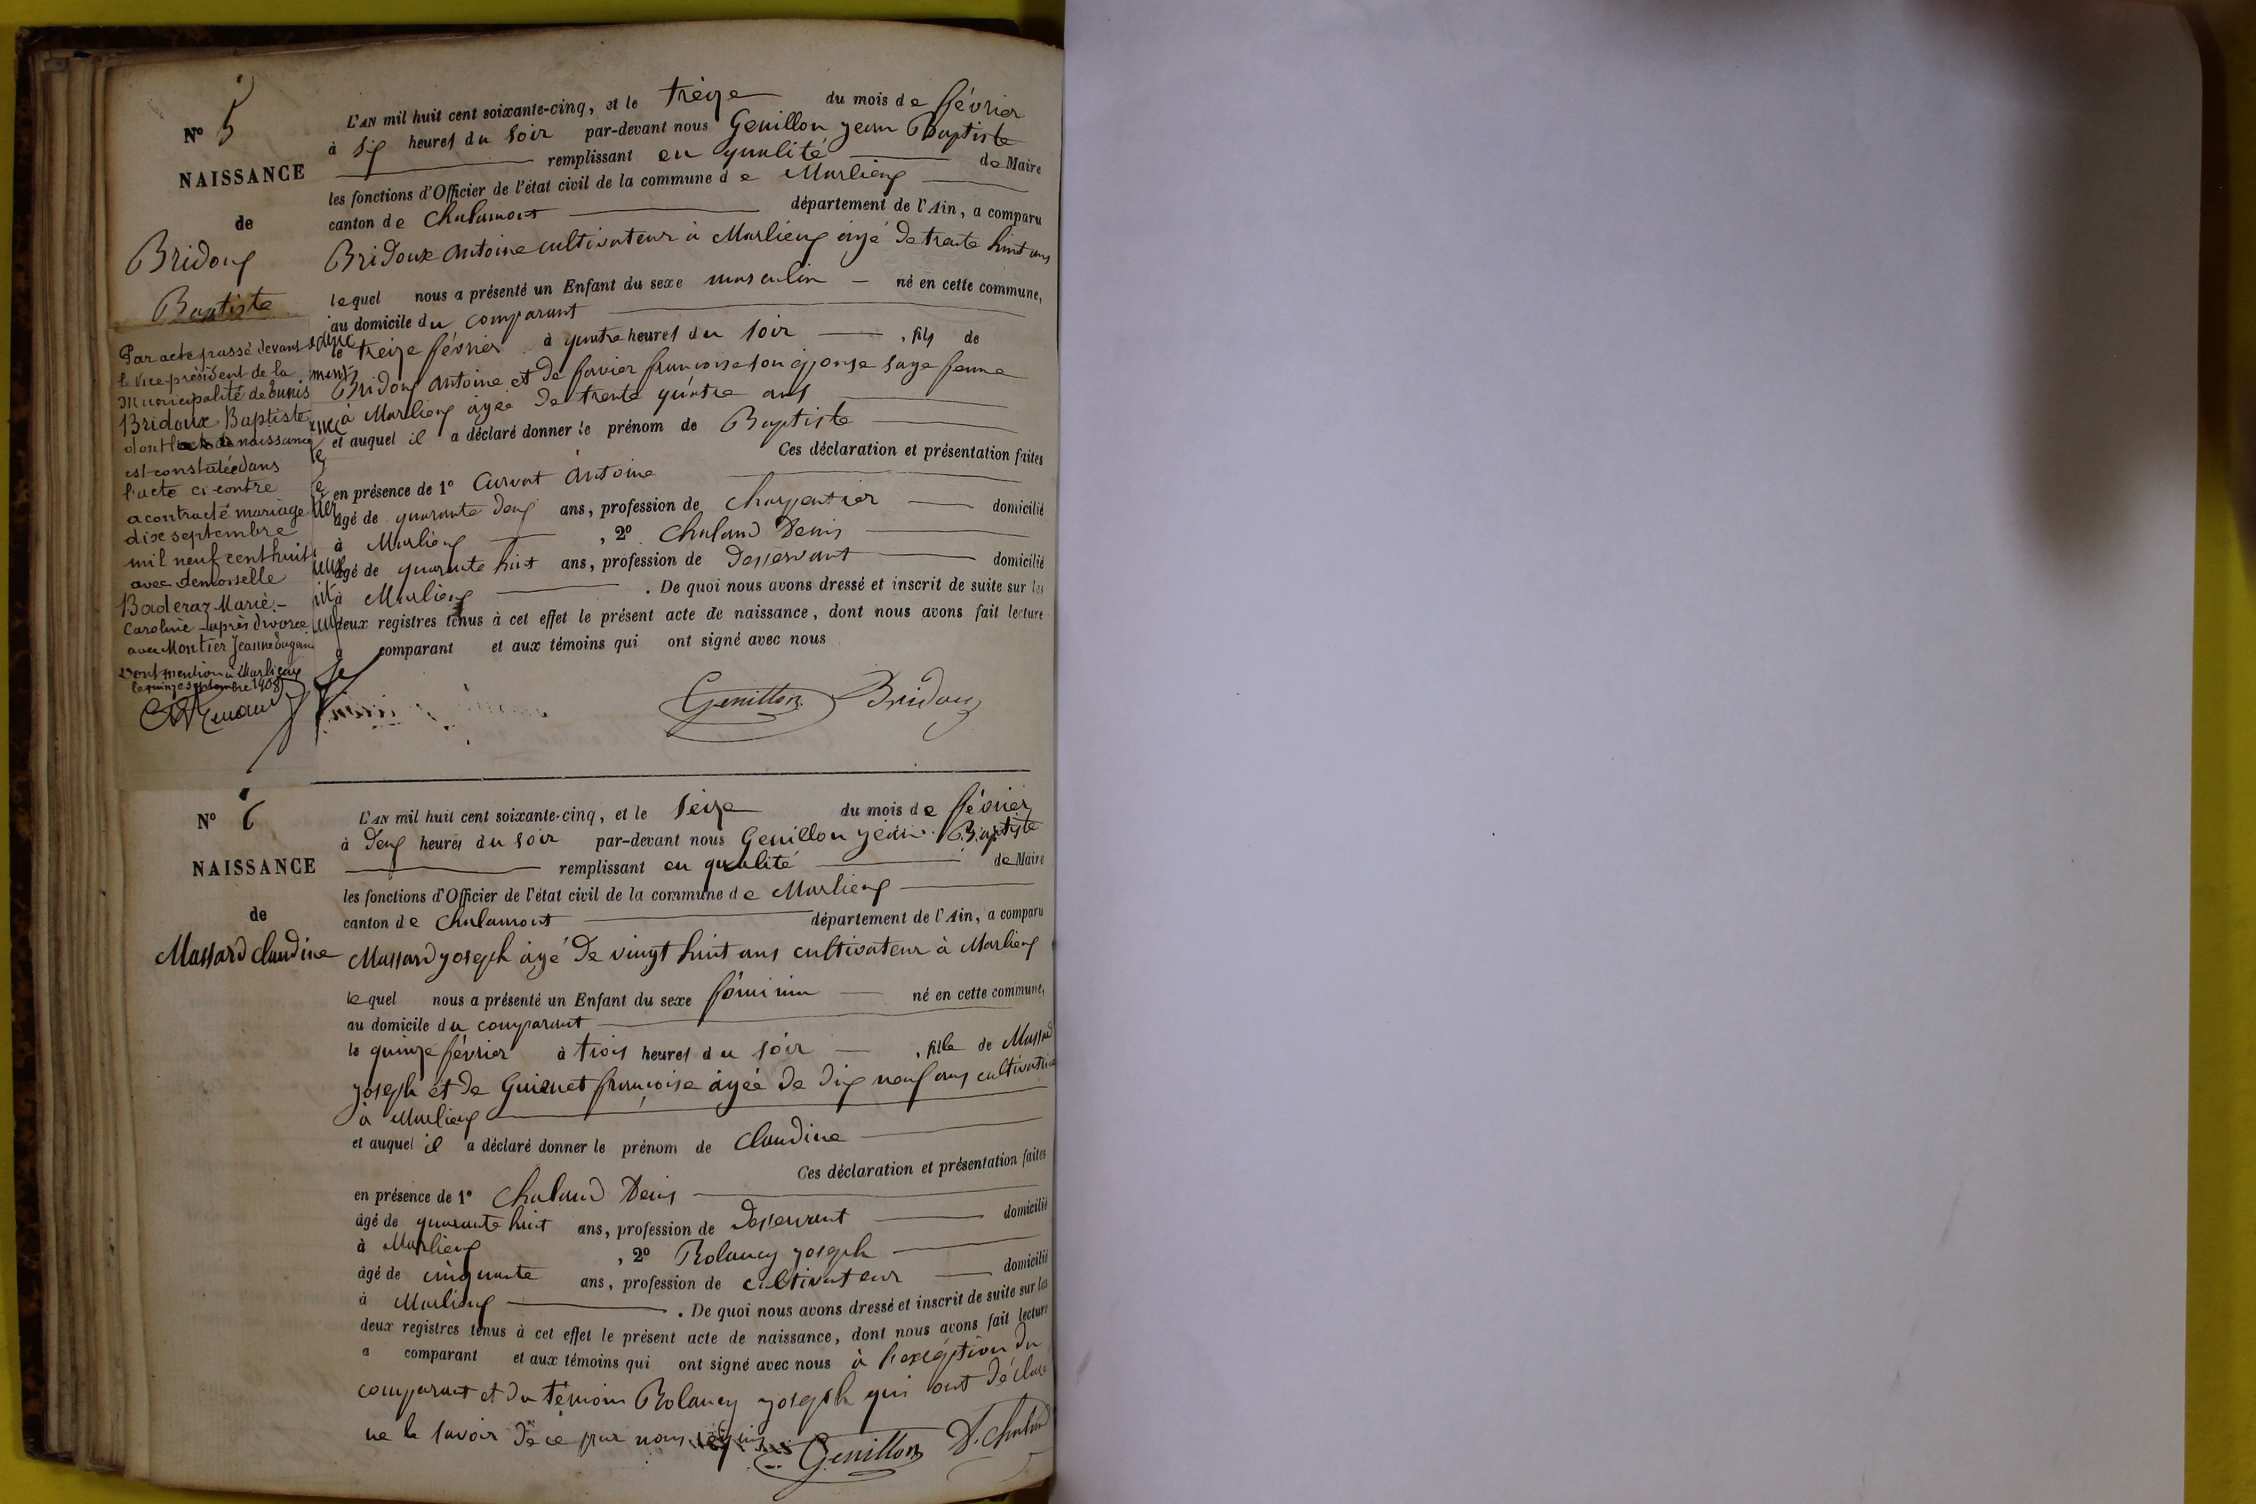 N° 5
NAISSANCE
de
Bridoux
Baptiste
Par acte passé devant
le vice-président de la
Municipalité de Tunis
Bridoux Baptiste
dont la naissance
est constatée dans
l'acte ci-contre
a contracté mariage
dix septembre
mil neuf cent huit
avec demoiselle
Baderaz Marie-
Caroline après divorce
avec Montier Jeanne
Dont mention à Marlieux
le quinze septembre 1908
L'AN mil huit cent soixante-cinq, et le treize du mois de février
à six heures du soir par-devant nous Genillon jean Baptiste
remplissant en qualité de Maire
les fonctions d'Officier de l'état civil de la commune de Marlieux
canton de Chalamont département de l'Ain, a comparu
Bridoux Antoine cultivateur à Marlieux âgé de trente huit ans
lequel nous a présenté un Enfant du sexe masculin né en cette commune,
au domicile du comparant
le treize février à quatre heures du soir , fils de
Bridoux Antoine et de favier françoise son épouse sage femme
à Marlieux âgée de trente quatre ans
et auquel il a déclaré donner le prénom de Baptiste
Ces déclaration et présentation faites
en présence de 1° Curvat Antoine
âgé de quarante deux ans, profession de charpentier domicilié
à Marlieux , 2° Chaland Denis
âgé de quarante huit ans, profession de Desservant domicilié
à Marlieux . De quoi nous avons dressé et inscrit de suite sur les
deux registres tenus à cet effet le présent acte de naissance, dont nous avons fait lecture
a comparant et aux témoins qui ont signé avec nous
Genillon Bridoux
N° 6
NAISSANCE
de
Massard Claudine
L'AN mil huit cent soixante-cinq, et le seize du mois de février
à deux heures du soir par-devant nous Genillon jean Baptiste
remplissant en qualité de Maire
les fonctions d'Officier de l'état civil de la commune de Marlieux
canton de Chalamont département de l'Ain, a comparu
Massard joseph âgé de vingt huit ans cultivateur à Marlieux
lequel nous a présenté un Enfant du sexe féminin né en cette commune,
au domicile du comparant
le quinze février à trois heures du soir , fille de Massard
joseph et de Guienet françoise âgée de dix neuf ans cultivatrice
à Marlieux
et auquel il a déclaré donner le prénom de Claudine
Ces déclaration et présentation faites
en présence de 1° Chaland Denis
âgé de quarante huit ans, profession de Desservant domicilié
à Marlieux , 2° Rolancy joseph
âgé de cinquante ans, profession de cultivateur domicilié
à Marlieux . De quoi nous avons dressé et inscrit de suite sur les
deux registres tenus à cet effet le présent acte de naissance, dont nous avons fait lecture
a comparant et aux témoins qui ont signé avec nous à l'exception du
comparant et du témoin Rolancy joseph qui ont déclaré
ne le savoir de ce par nous requis
Genillon D. Chaland